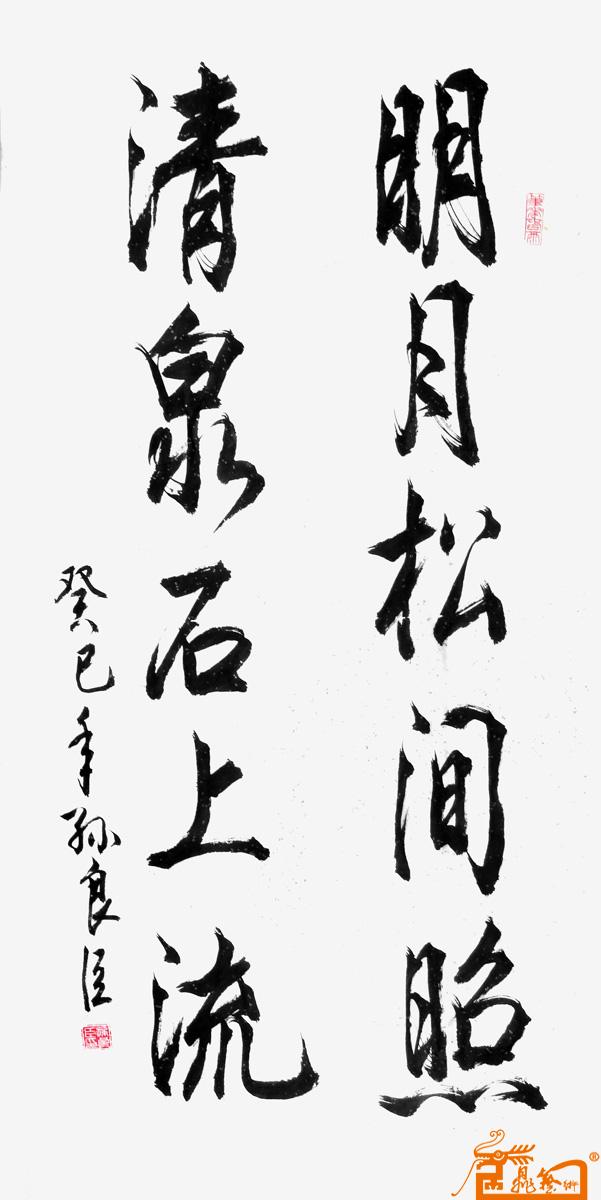 明月松间照
清泉石上流
癸巳年孙良臣